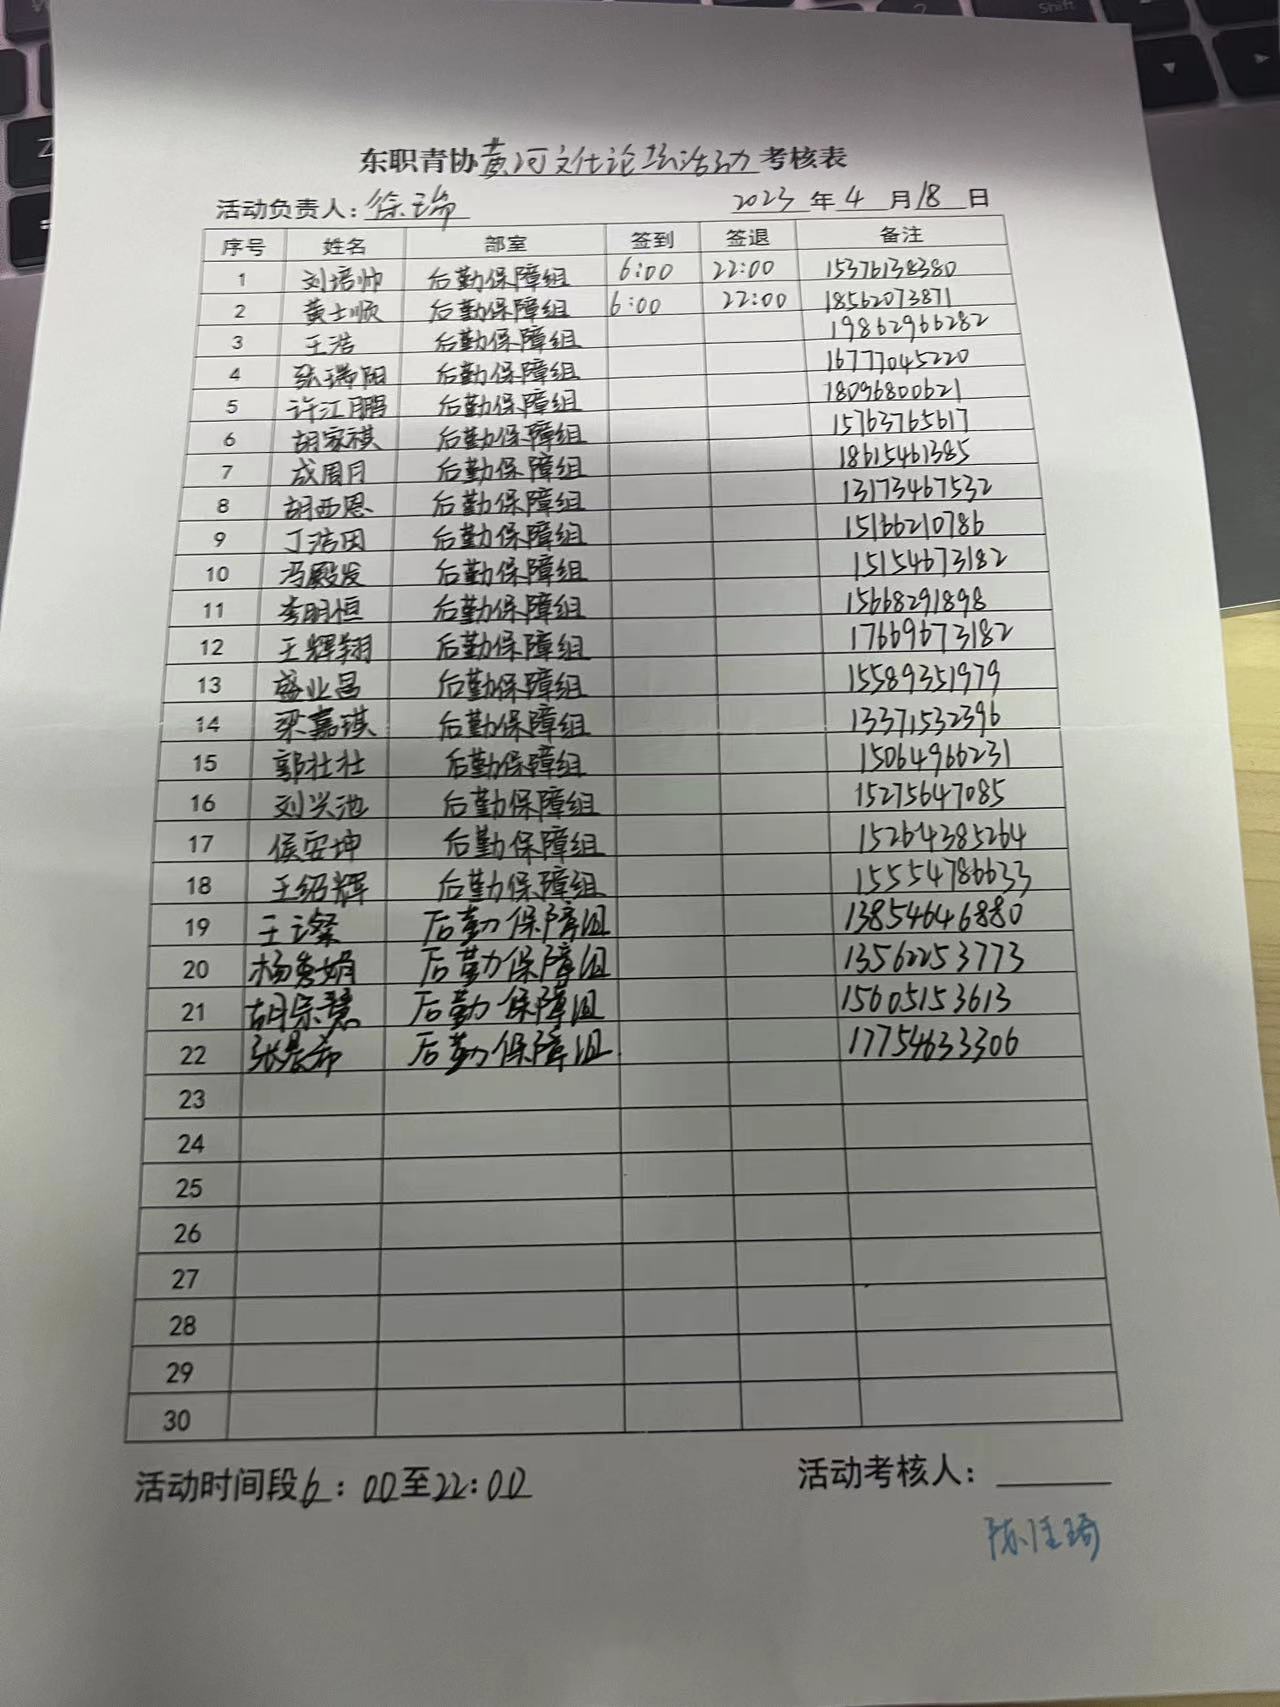 东职青协黄河文化论坛活动考核表
活动负责人：徐瑞 2023年4月18日
序号 姓名 部室 签到 签退 备注
1 刘培帅 后勤保障组 6:00 22:00 15376138380
2 黄士顺 后勤保障组 6:00 22:00 18562073871
3 王浩 后勤保障组 19862966282
4 张瑞阳 后勤保障组 16777045220
5 许江鹏 后勤保障组 18096800621
6 胡家祺 后勤保障组 15763765617
7 成周月 后勤保障组 18615461385
8 胡西恩 后勤保障组 13173467532
9 丁浩因 后勤保障组 15166210786
10 冯殿发 后勤保障组 15154673182
11 李明恒 后勤保障组 15668291898
12 王辉翔 后勤保障组 17669673182
13 盛业昌 后勤保障组 15589351979
14 梁嘉琪 后勤保障组 13371532396
15 郭壮壮 后勤保障组 15064966231
16 刘兴池 后勤保障组 15275647085
17 侯安坤 后勤保障组 15264385264
18 王绍辉 后勤保障组 15554786633
19 王璨 后勤保障组 13854646880
20 杨秀娟 后勤保障组 13562253773
21 胡宗慧 后勤保障组 15605153613
22 张晨希 后勤保障组 17754633306
23
24
25
26
27
28
29
30
活动时间段6：00至22：00 活动考核人：
陈佳琦